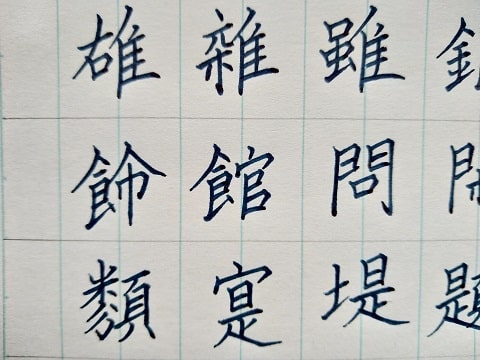 雄雜雖
飾館問
類寔堤